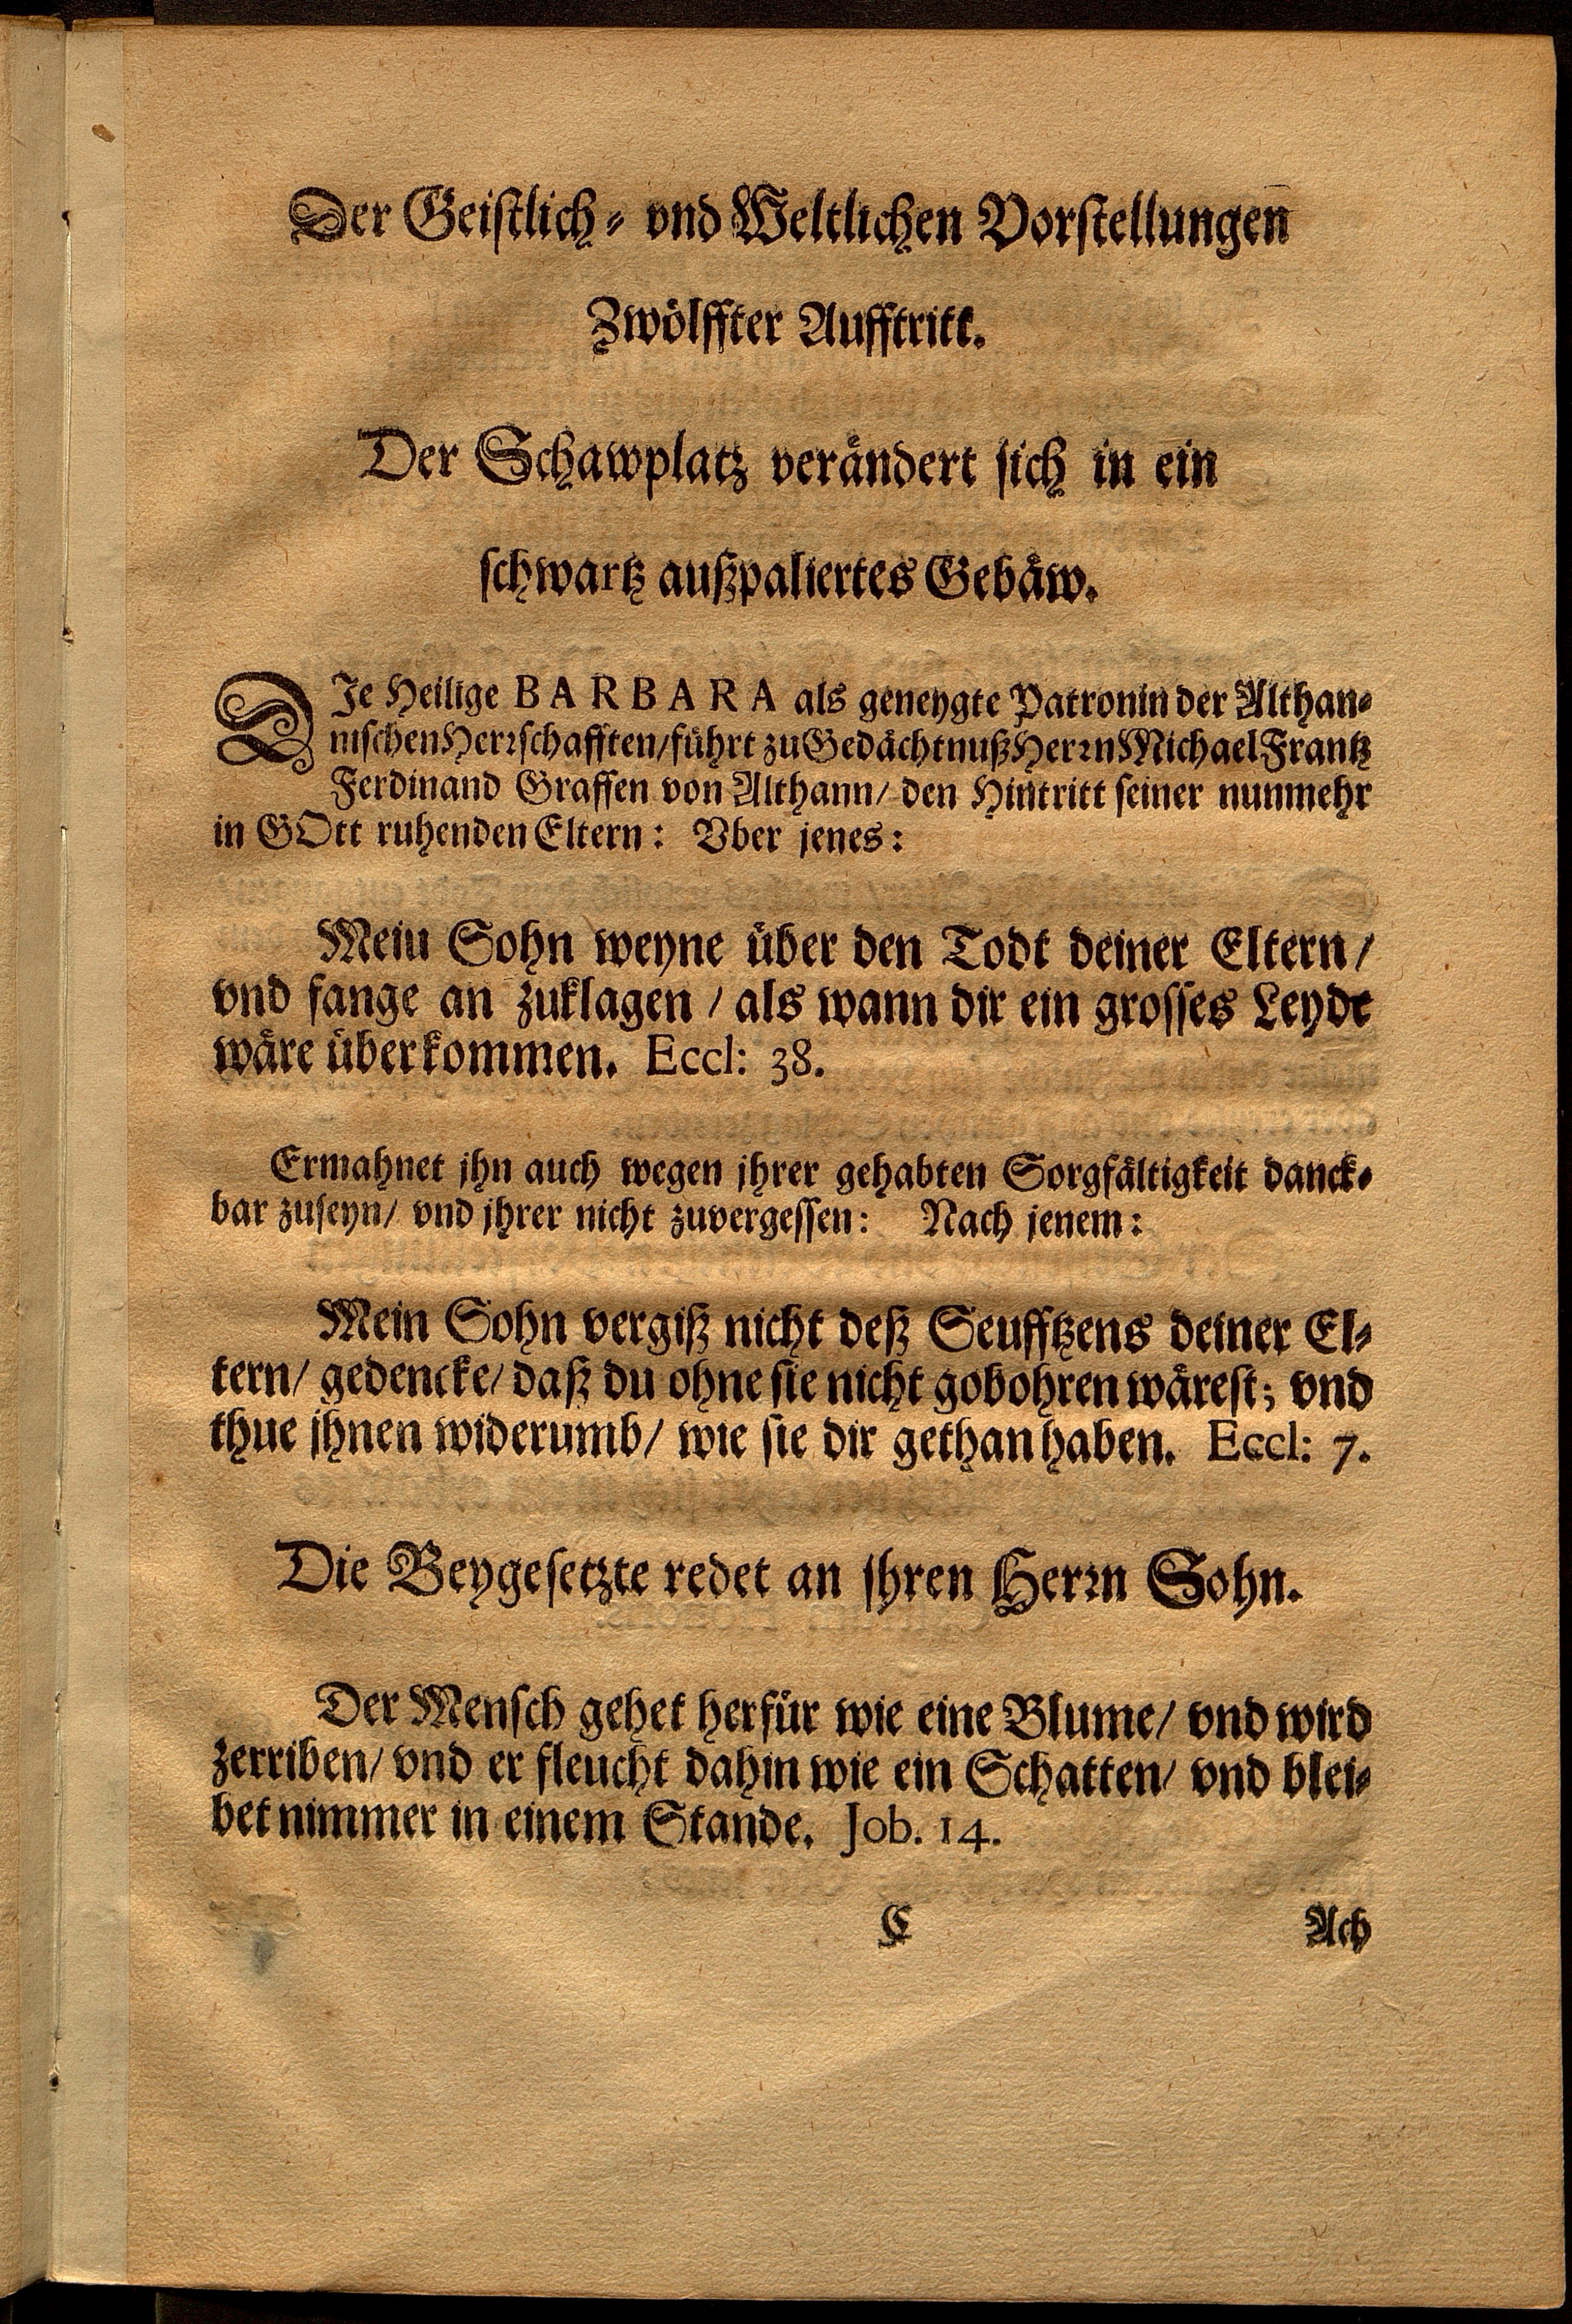 Der Geistlich- vnd Weltlichen Vorstellungen̄
Zwölffter Aufftritt.
Der Schawplatz verändert sich in ein
schwartz außpaliertes Gebäw.
DIe Heilige BARBARA als geneygte Patronin der Althan-
nischen Herrschafften/ führt zu Gedächtnuß Herrn Michael Frantz
Ferdinand Graffen von Althann/ den Hintritt seiner nunmehr
in GOtt ruhenden Eltern: Vber jenes:
Mein Sohn weyne über den Todt deiner Eltern/
vnd fange an zuklagen / als wann dir ein grosses Leydt
wäre überkommen. Eccl: 38.
Ermahnet jhn auch wegen jhrer gehabten Sorgfältigkeit danck-
bar zuseyn/ vnd jhrer nicht zuvergessen: Nach jenem:
Mein Sohn vergiß nicht deß Seufftzens deiner El-
tern/ gedencke/ daß du ohne sie nicht gobohren wärest; vnd
thue jhnen widerumb/ wie sie dir gethan haben. Eccl: 7.
Die Beygesetzte redet an jhren Herrn Sohn.
Der Mensch gehet herfür wie eine Blume/ vnd wird
zerriben/ vnd er fleucht dahin wie ein Schatten/ vnd blei-
bet nimmer in einem Stande. Job. 14.
C Ach